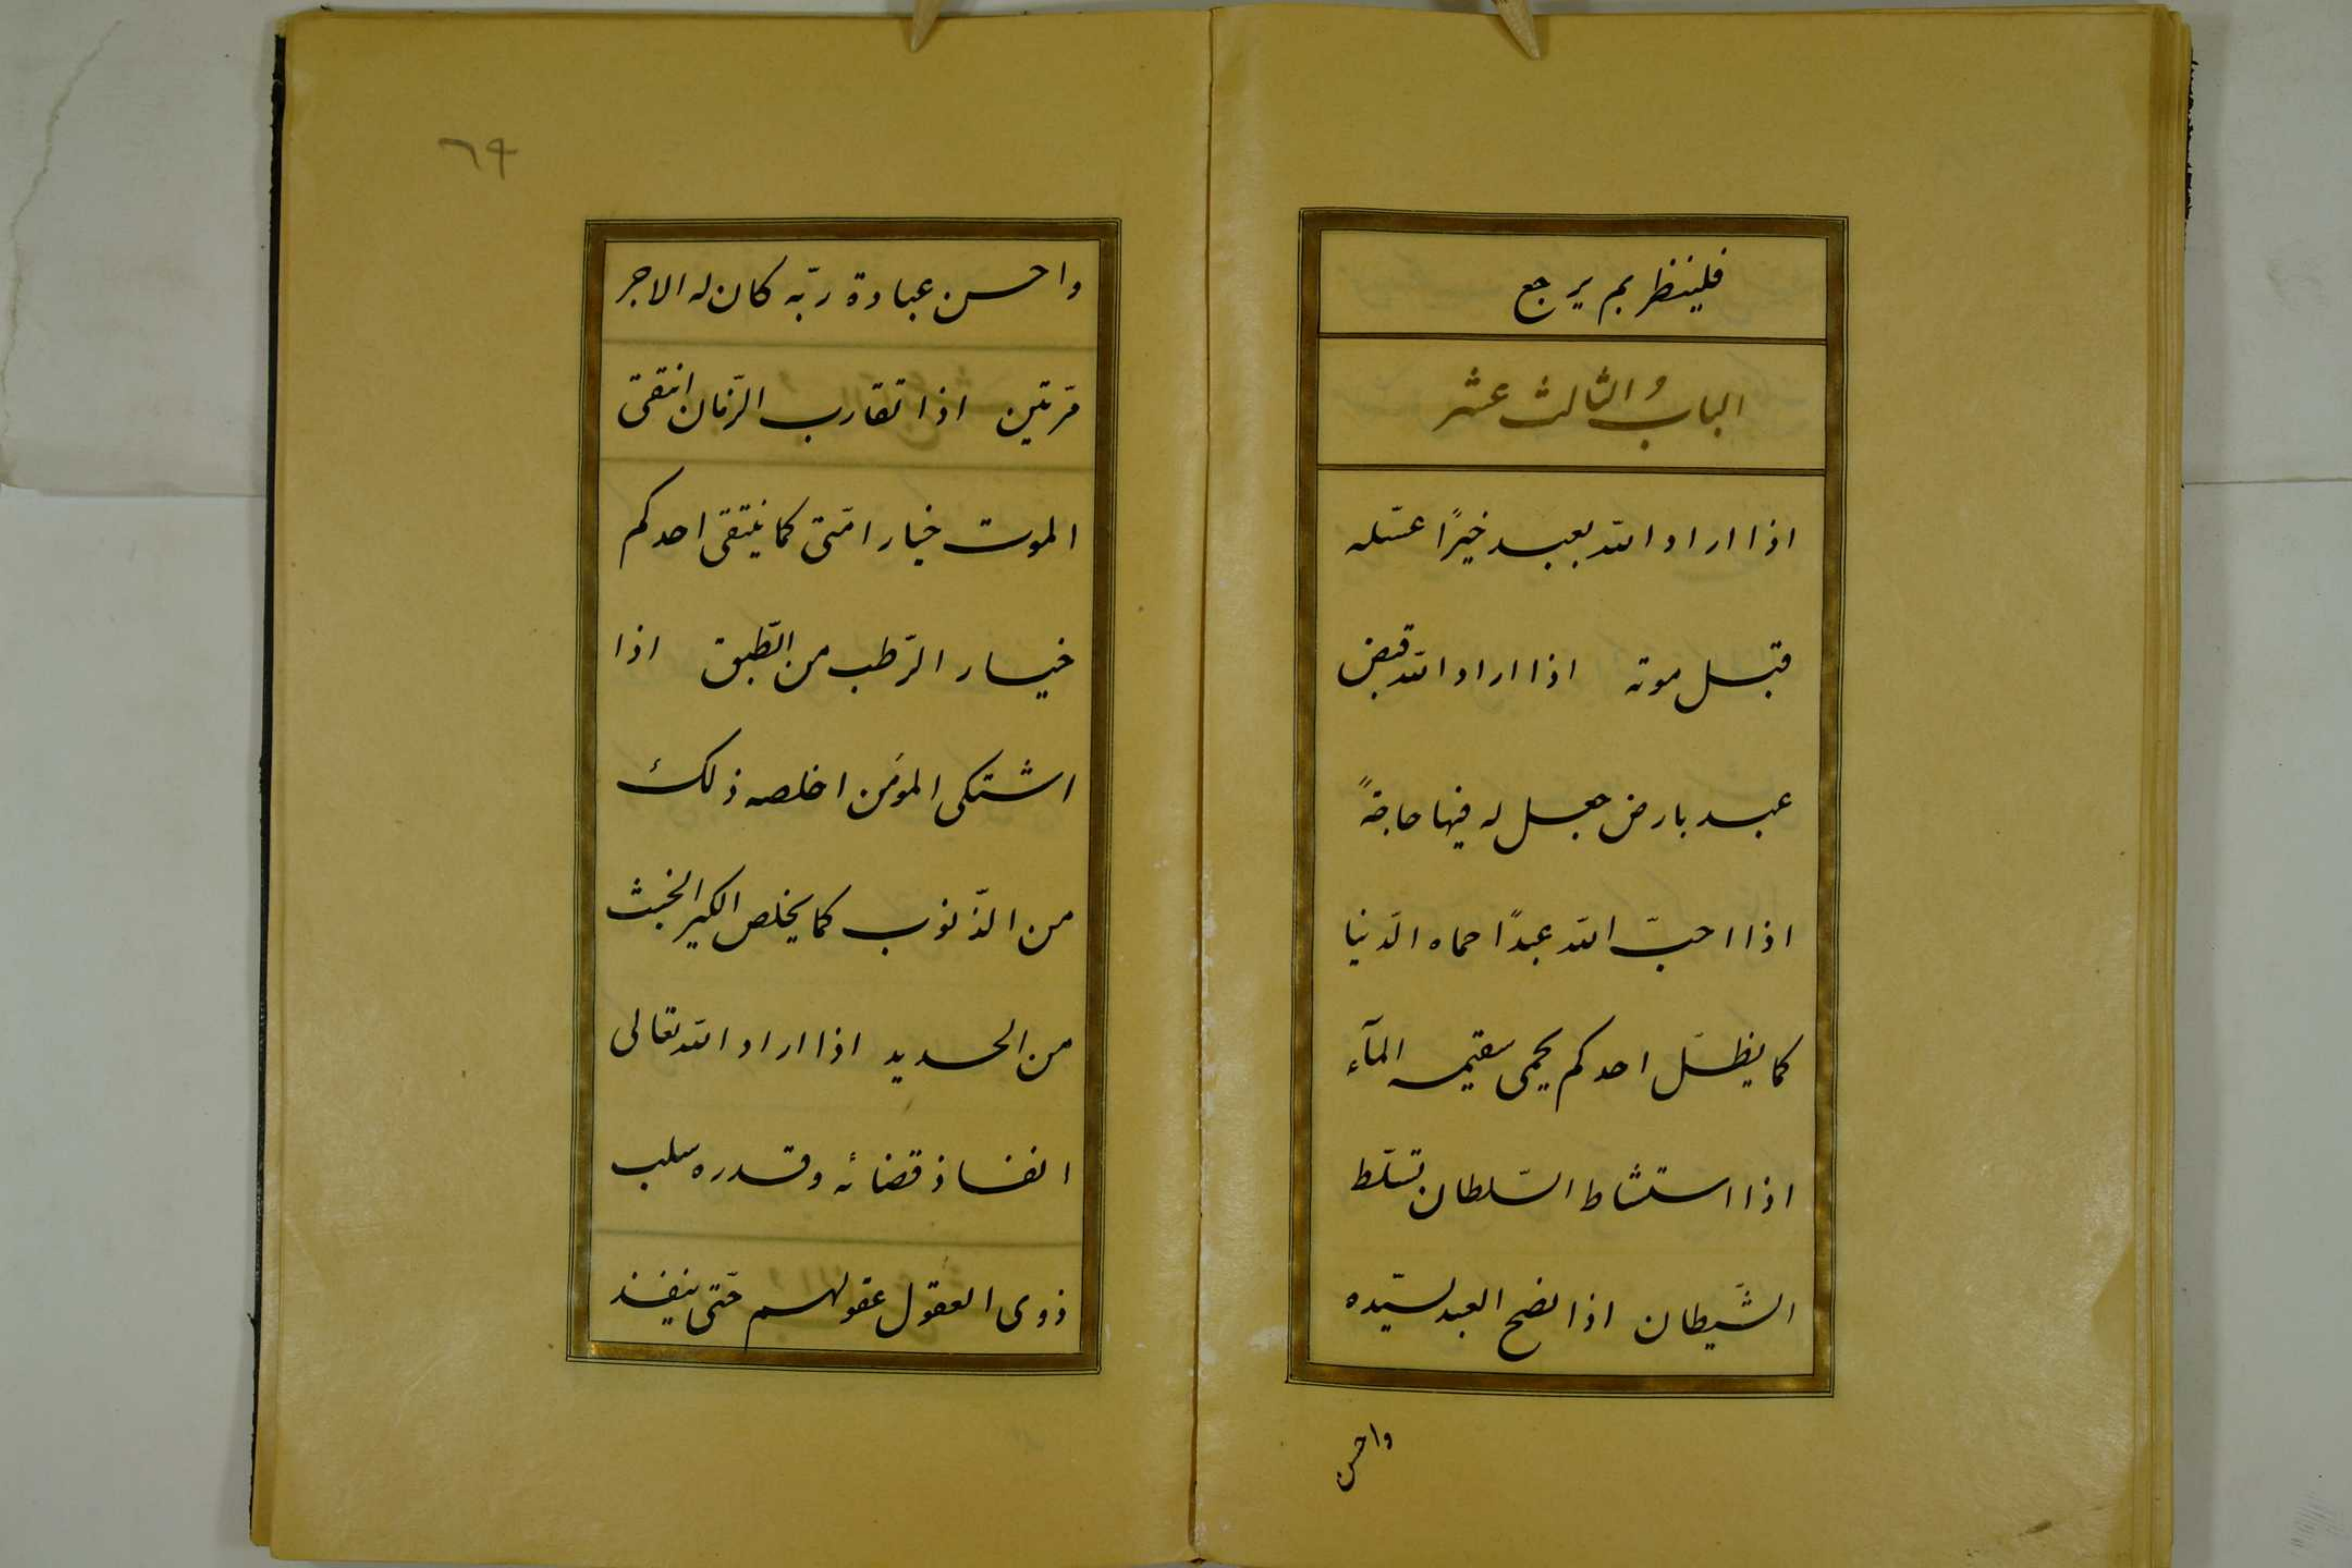 فلينظر بم يرجع
الباب الثالث عشر
اذا اراد الله بعبد خيرًا عسّله
قبل موته اذا اراد الله قبض
عبد بارض جعل له فيها حاجةً
اذا احبّ الله عبدًا حماه الدّنيا
كما يظلّ احدكم يحمى سقيمه المآء
اذا استشاط السّلطان تسلّط
الشّيطان اذا نصح العبد لسيّده
واحسن
٦٩
واحسن عبادة ربّه كان له الاجر
مرّتين اذا تقارب الزّمان انتقى
الموت خيار امّتى كما ينتقى احدكم
خيار الرّطب من الطّبق اذا
اشتكى المؤمن اخلصه ذلك
من الذّنوب كما يخلص الكير الخبث
من الحديد اذا اراد الله تعالى
انفاذ قضائه وقدره سلب
ذوى العقول عقولهم حتّى ينفذ